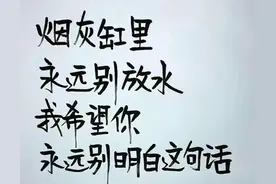 烟灰缸里
永远别放水
我希望你
永远别明白这句话